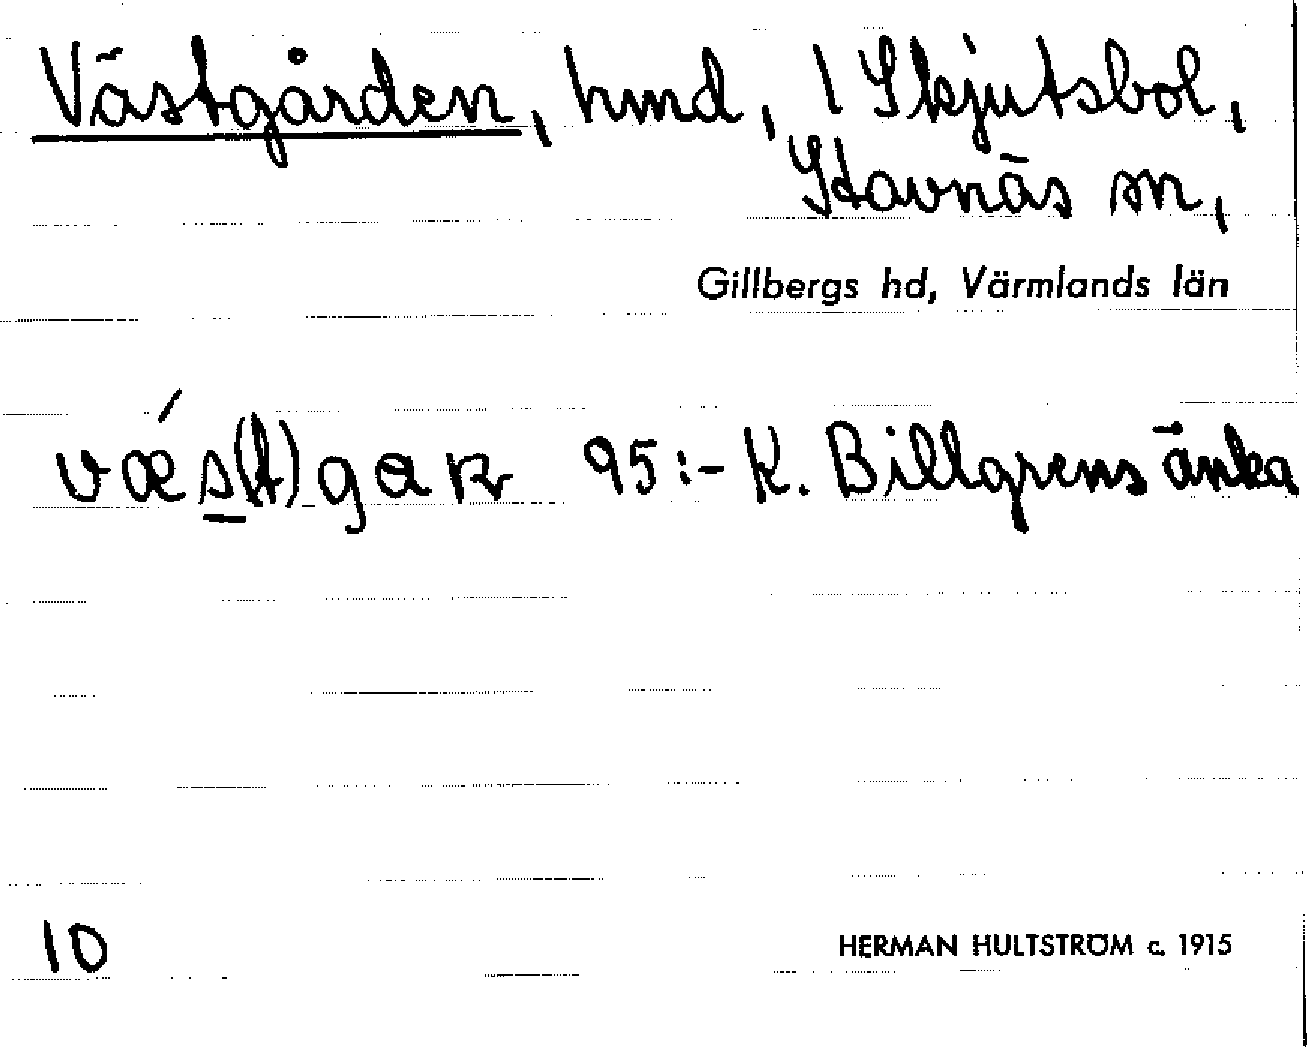 Västgården, hmd, 1 Skjutsbol,
Stavnäs sn,
Gillbergs hd, Värmlands län
væ´s(t)gaʀ 95:- K. Billgrens änka
10 HERMAN HULTSTRÖM c. 1915